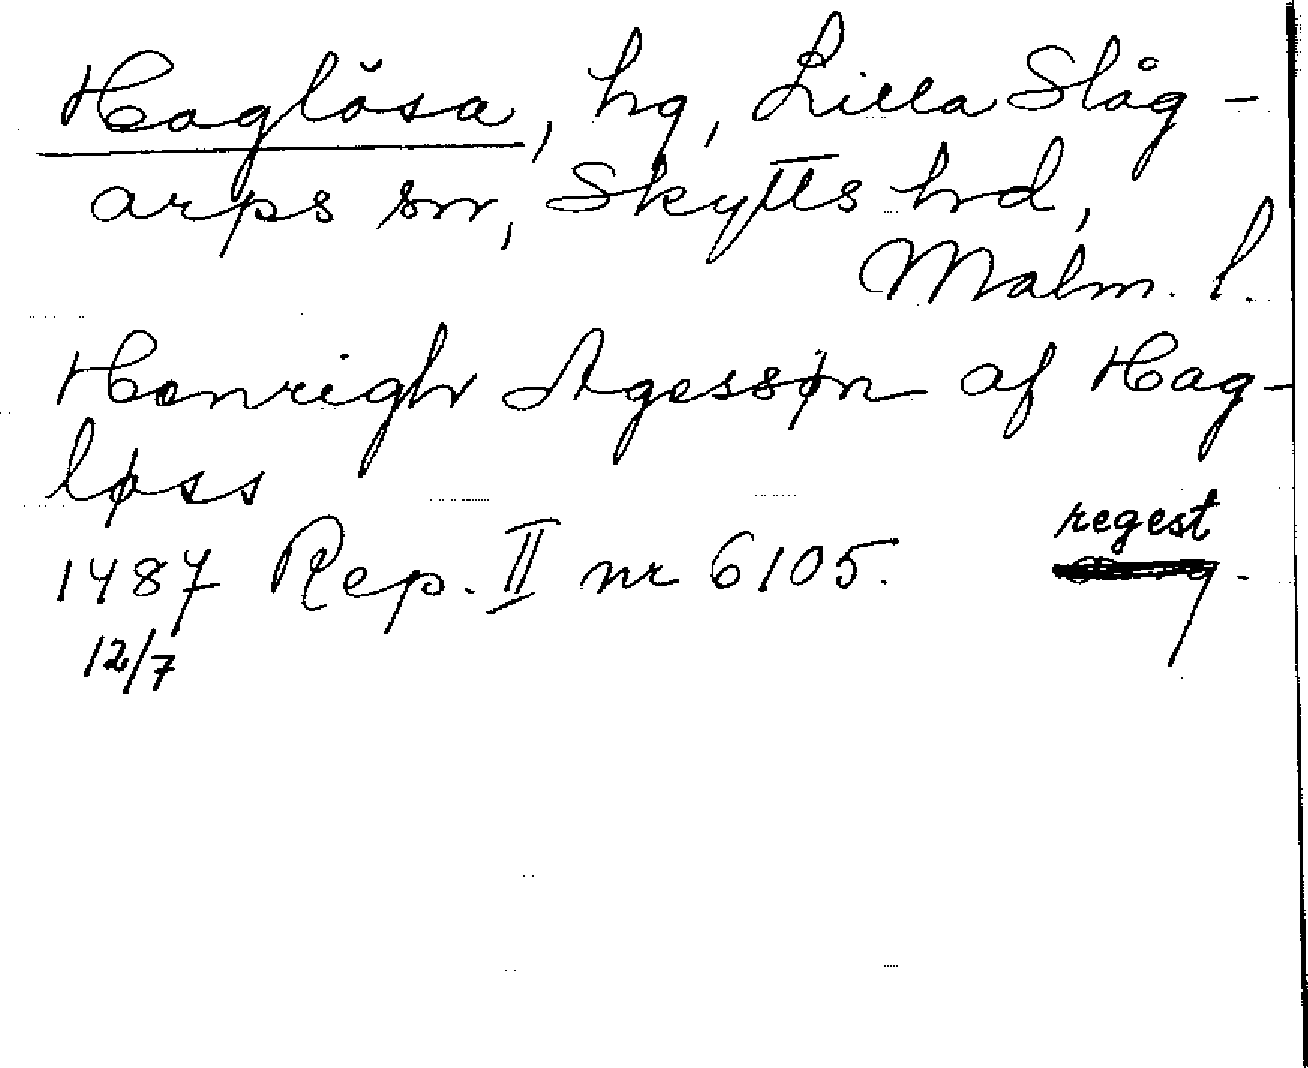 Haglösa, hg, Lilla Slåg-
arps sn, Skytts hd,
Malm. l.
Henrigh Agessøn af Hag-
løss
regest
1487 Rep. II nr 6105.
12/7